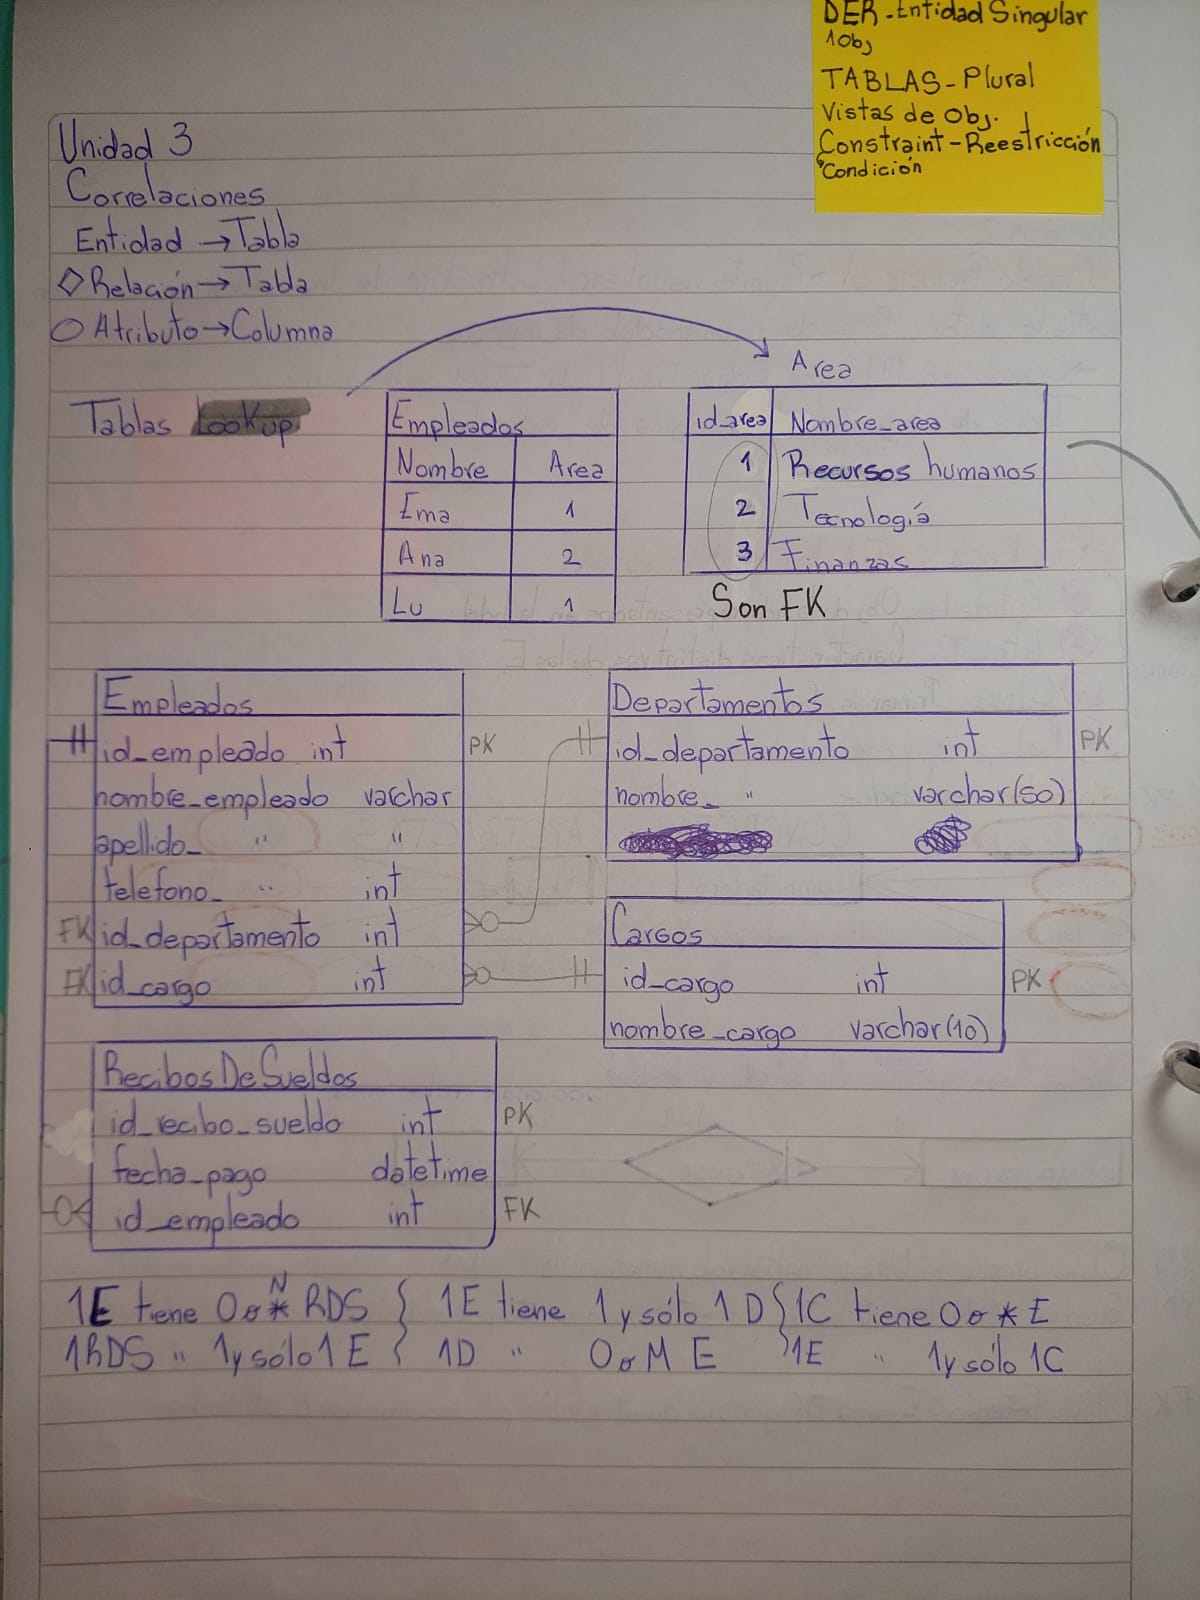 DER - Entidad Singular
1 Obj
TABLAS - Plural
Vistas de Obj.
Constraint - Reestricción
Condición
Unidad 3
Correlaciones
Entidad → Tabla
◇ Relación → Tabla
○ Atributo → Columna
Tablas Lookup
Empleados
Nombre Area
Ema 1
Ana 2
Lu 1
Area
id_area Nombre_area
1 Recursos humanos
2 Tecnología
3 Finanzas
Son FK
Empleados
id_empleado int PK
nombre_empleado varchar
apellido_ " "
telefono_ " int
FK id_departamento int
FK id_cargo int
Departamentos
id_departamento int PK
nombre_ " varchar(50)
Cargos
id_cargo int PK
nombre_cargo varchar(10)
RecibosDeSueldos
id_recibo_sueldo int PK
fecha_pago datetime
id_empleado int FK
N
1E tiene 0 o * RDS { 1E tiene 1 y sólo 1 D } 1C tiene 0 o * E
1RDS " 1 y sólo 1 E { 1D " 0 o M E } 1E " 1 y sólo 1C